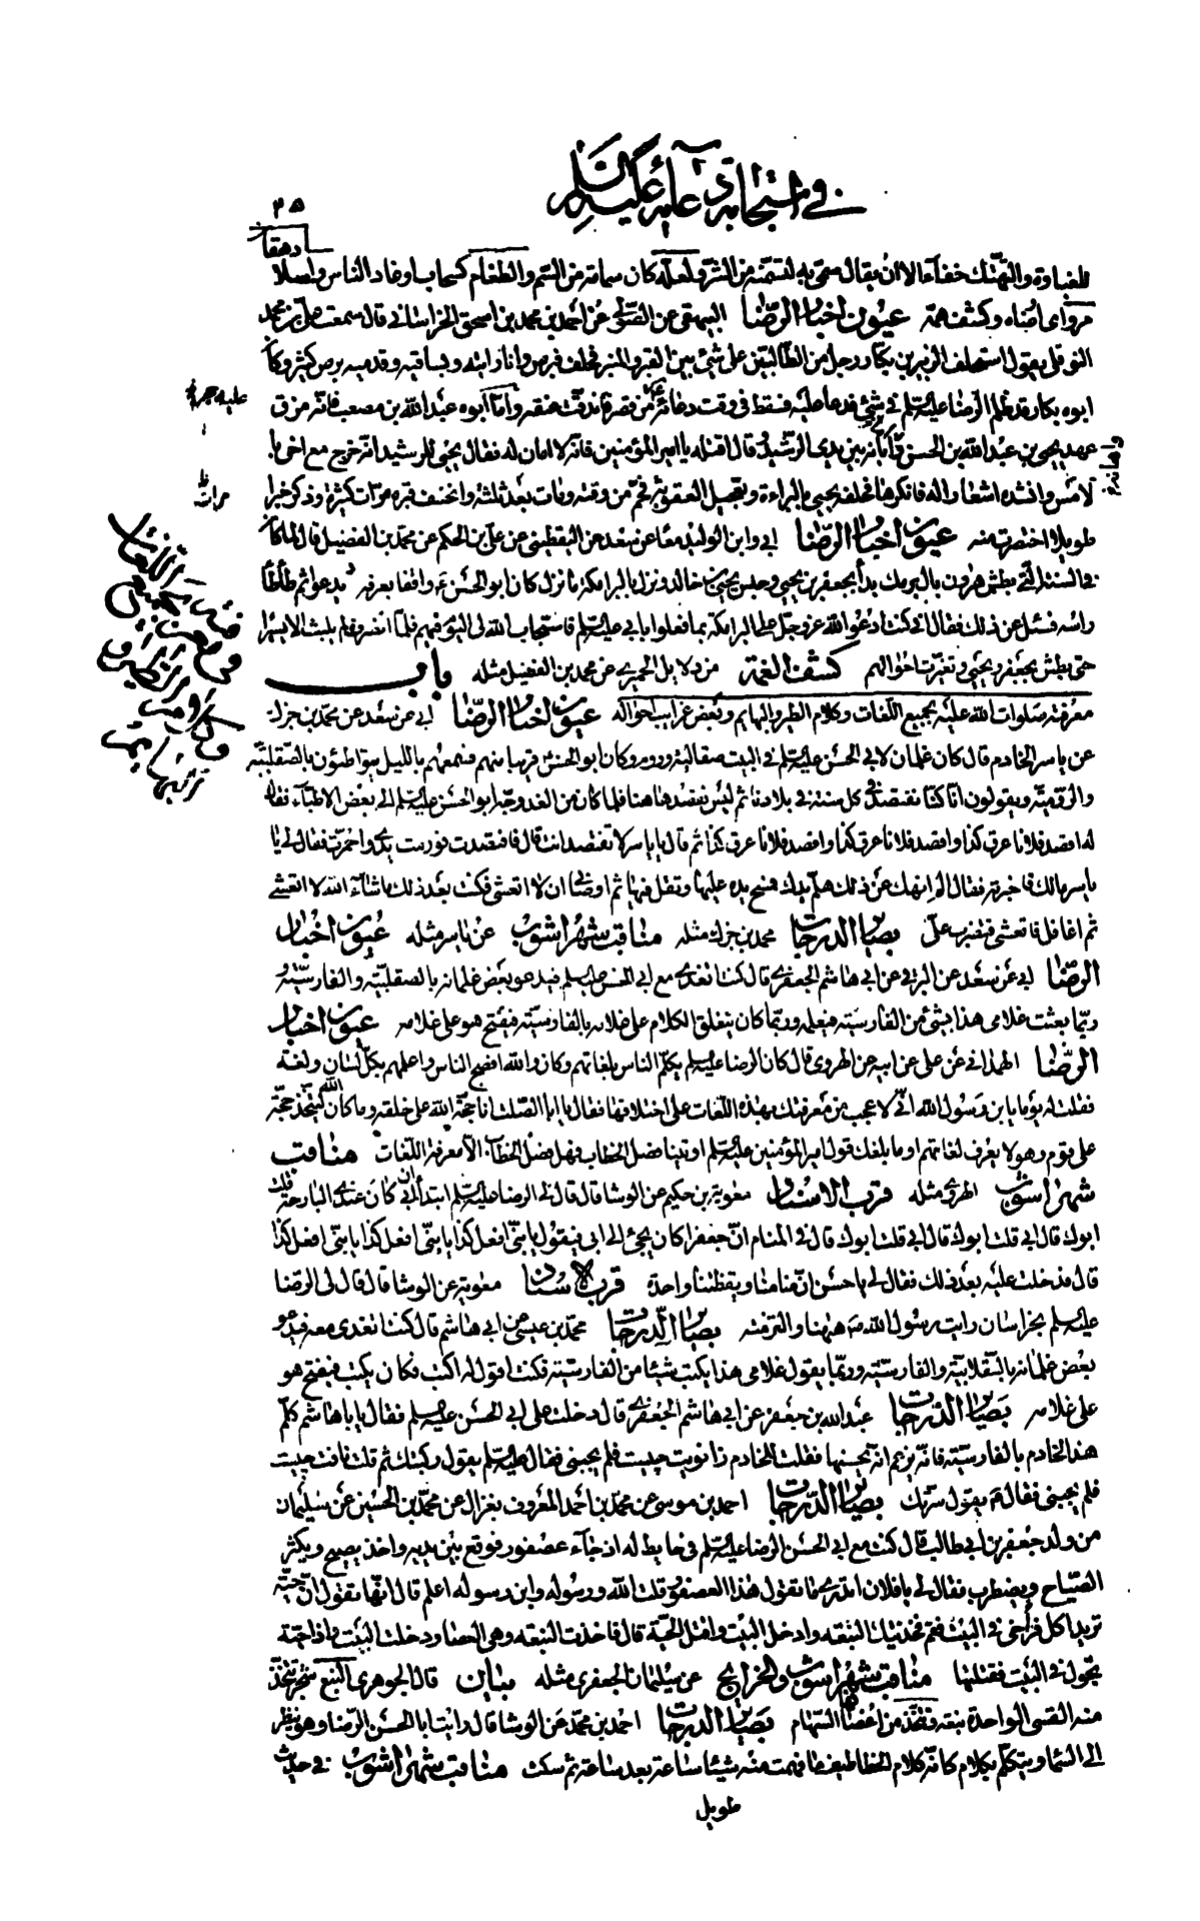 في استجابة دعائه عليه السلام
٣٥
للغباوة والتهتك خفاء الا ان يقال سمى به لتسمنه من الشر ولعله كان سمانه من السم والطغام كسحاب اوغاد الناس واصلا
دهقا
مرو اى اصباه وكشف همه عيون اخبار الرضا البيهقي عن الصولي عن احمد بن محمد بن اسحق الخراساني قال سمعت علي بن محمد
النوفلي يقول استحلف الزبير بن بكار رجل من الطالبيين على شيء بين القبر والمنبر فحلف فبرص وانا رايته وبساقيه وقدميه برص كثير وكان
ابوه بكار قد ظلم الرضا عليه السلم في شيء فدعا عليه فسقط في وقت دعائه من قصر فاندقت عنقه واما ابوه عبد الله بن مصعب فانه مزق
عليه حجر
عهد يحيى بن عبد الله بن الحسن وامانه بين يدي الرشيد وقال اقتله يا امير المؤمنين فانه لا امان له فقال يحيى للرشيد انه خرج مع اخي با
لامس وانشده اشعارا له فانكرها فحلفه يحيى بالبراءة وتعجيل العقوبة فحم من وقته ومات بعد ثلثة وانخسف قبره مرات كثيرة وذكر خبرا
مرات
طويلا اختصرت منه عيون اخبار الرضا ابي وابن الوليد معا عن سعد عن اليقطيني عن علي بن الحكم عن محمد بن الفضيل قال لما كان
في السنة التي بطش هرون بال برمك بدأ بجعفر بن يحيى وحبس يحيى بن خالد ونزل بالبرامكة ما نزل كان ابو الحسن ع واقفا بعرفة يدعو ثم طأطأ
راسه فسئل عن ذلك فقال اني كنت ادعو الله عز وجل على البرامكة بما فعلوا بابي عليه السلم فاستجاب الله لي اليوم فيهم فلما انصرف لم يلبث الا يسيرا
حتى بطش بجعفر ويحيى وتغيرت احوالهم كشف الغمة من دلايل الحميري عن محمد بن الفضيل مثله باب
معرفته صلوات الله عليه بجميع اللغات وكلام الطير والبهايم وبعض غرايب احواله عيون اخبار الرضا ابي عن سعد عن محمد بن جزك
عن ياسر الخادم قال كان غلمان لابي الحسن عليه السلم في البيت صقالبة ورومية وكان ابو الحسن قريبا منهم فسمعهم بالليل يتواطئون بالصقلبية
والرومية ويقولون انا كنا نفتصد في كل سنة في بلادنا ثم ليس نفتصد هاهنا فلما كان من الغد وجه ابو الحسن عليه السلم الى بعض الاطباء فقال
له افصد فلانا عرق كذا وافصد فلانا عرق كذا وافصد فلانا عرق كذا ثم قال يا ياسر لا تفتصد انت قال فافتصدت فورمت يدي واحمرت فقال لي يا
ياسر مالك فاخبرته فقال الم انهك عن ذلك هلم يدك فمسح يده عليها وتفل فيها ثم اوصاني ان لا اتعشى فكنت بعد ذلك ما شاء الله لا اتعشى
ثم اغافل فاتعشى فيضرب علي بصاير الدرجات محمد بن جزك مثله مناقب شهراشوب عن ياسر مثله عيون اخبار
الرضا ابي عن سعد عن البرقي عن ابي هاشم الجعفري قال كنت اتغدى مع ابي الحسن عليه السلم فيدعو بعض غلمانه بالصقلبية والفارسية و
ربما بعثت غلامي هذا بشيء من الفارسية فيعلمه وربما كان ينغلق الكلام على غلامه بالفارسية فيفتح هو على غلامه عيون اخبار
الرضا الهمداني عن علي عن ابيه عن الهروي قال كان الرضا عليه السلم يكلم الناس بلغاتهم وكان والله افصح الناس واعلمهم بكل لسان ولغة
فقلت له يوما يا ابن رسول الله اني لاعجب من معرفتك بهذه اللغات على اختلافها فقال يا ابا الصلت انا حجة الله على خلقه وما كان الله ليتخذ حجة
على قوم وهو لا يعرف لغاتهم اوما بلغك قول امير المؤمنين عليه السلم اوتينا فصل الخطاب فهل فصل الخطاب الا معرفة اللغات مناقب
شهراشوب الهروي مثله قرب الاسناد معوية بن حكيم عن الوشا قال قال لي الرضا عليه السلم ابتداء ان ابي كان عندي البارحة قلت
ابوك قال ابي قلت ابوك قال ابي قلت ابوك قال في المنام ان جعفرا كان يجيء الى ابي فيقول يا بني افعل كذا يا بني افعل كذا يا بني افعل كذا
قال فدخلت عليه بعد ذلك فقال لي يا حسن ان منامنا ويقظتنا واحدة قرب الاسناد معوية عن الوشا قال قال لي الرضا
عليه السلم بخراسان رايت رسول الله صم ههنا والتزمته بصاير الدرجات محمد بن عيسى عن ابي هاشم قال كنت اتغدى معه فيدعو
بعض غلمانه بالسقلابية والفارسية وربما يقول غلامي هذا يكتب شيئا من الفارسية فكنت اقول له اكتب فكان يكتب فيفتح هو
على غلامه بصاير الدرجات عبد الله بن جعفر عن ابي هاشم الجعفري قال دخلت على ابي الحسن عليه السلم فقال يا ابا هاشم كلم
هذا الخادم بالفارسية فانه يزعم انه يحسنها فقلت للخادم زانويت چيست فلم يجبني فقال عليه السلم يقول ركبتك ثم قلت نافت چيست
فلم يجبني فقال ع يقول سرتك بصاير الدرجات احمد بن موسى عن محمد بن احمد المعروف بغزال عن محمد بن الحسين عن سليمان
من ولد جعفر بن ابي طالب قال كنت مع ابي الحسن الرضا عليه السلم في حايط له اذ جاء عصفور فوقع بين يديه واخذ يصيح ويكثر
الصياح ويضطرب فقال لي يا فلان اتدري ما تقول هذا العصفور قلت الله ورسوله وابن رسوله اعلم قال انها تقول ان حية
تريد اكل فراخي في البيت فقم فخذ تيك النبعة وادخل البيت واقتل الحية قال فاخذت النبعة وهي العصا ودخلت البيت واذا حية
تجول في البيت فقتلتها مناقب شهراشوب والخرايج عن سليمان الجعفري مثله بيان قال الجوهري النبع شجر تتخذ
منه القسي الواحدة نبعة وتتخذ من اغصانها السهام بصاير الدرجات احمد بن محمد عن الوشا قال رايت ابا الحسن الرضا وهو ينظر
الى السماء ويتكلم بكلام كانه كلام الخطاطيف ما فهمت منه شيئا ساعة بعد ساعة ثم سكت مناقب شهراشوب في حديث
طويل